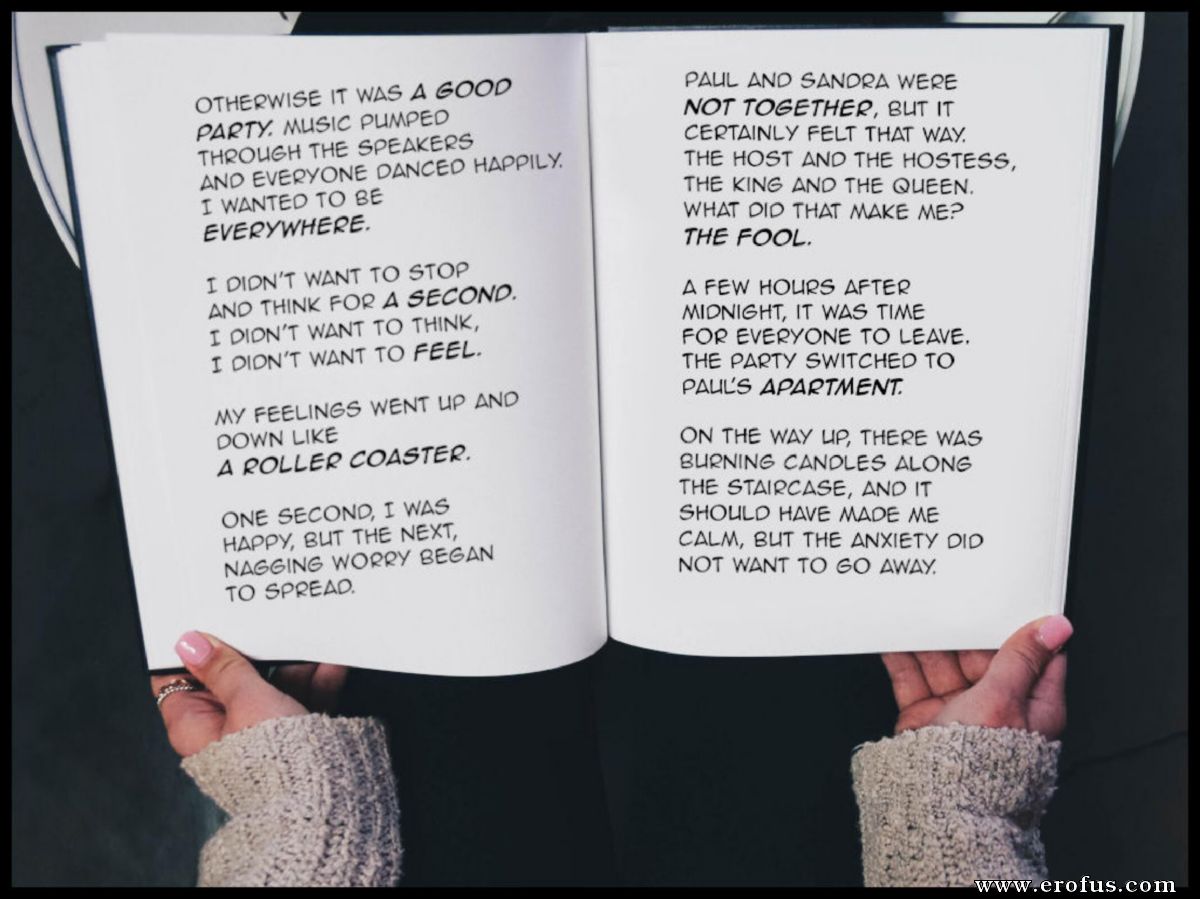 OTHERWISE IT WAS A GOOD
PARTY. MUSIC PUMPED
THROUGH THE SPEAKERS
AND EVERYONE DANCED HAPPILY.
I WANTED TO BE
EVERYWHERE.
I DIDN'T WANT TO STOP
AND THINK FOR A SECOND.
I DIDN'T WANT TO THINK,
I DIDN'T WANT TO FEEL.
MY FEELINGS WENT UP AND
DOWN LIKE
A ROLLER COASTER.
ONE SECOND, I WAS
HAPPY, BUT THE NEXT,
NAGGING WORRY BEGAN
TO SPREAD.
PAUL AND SANDRA WERE
NOT TOGETHER, BUT IT
CERTAINLY FELT THAT WAY.
THE HOST AND THE HOSTESS,
THE KING AND THE QUEEN.
WHAT DID THAT MAKE ME?
THE FOOL.
A FEW HOURS AFTER
MIDNIGHT, IT WAS TIME
FOR EVERYONE TO LEAVE.
THE PARTY SWITCHED TO
PAUL'S APARTMENT.
ON THE WAY UP, THERE WAS
BURNING CANDLES ALONG
THE STAIRCASE, AND IT
SHOULD HAVE MADE ME
CALM, BUT THE ANXIETY DID
NOT WANT TO GO AWAY.
www.erofus.com